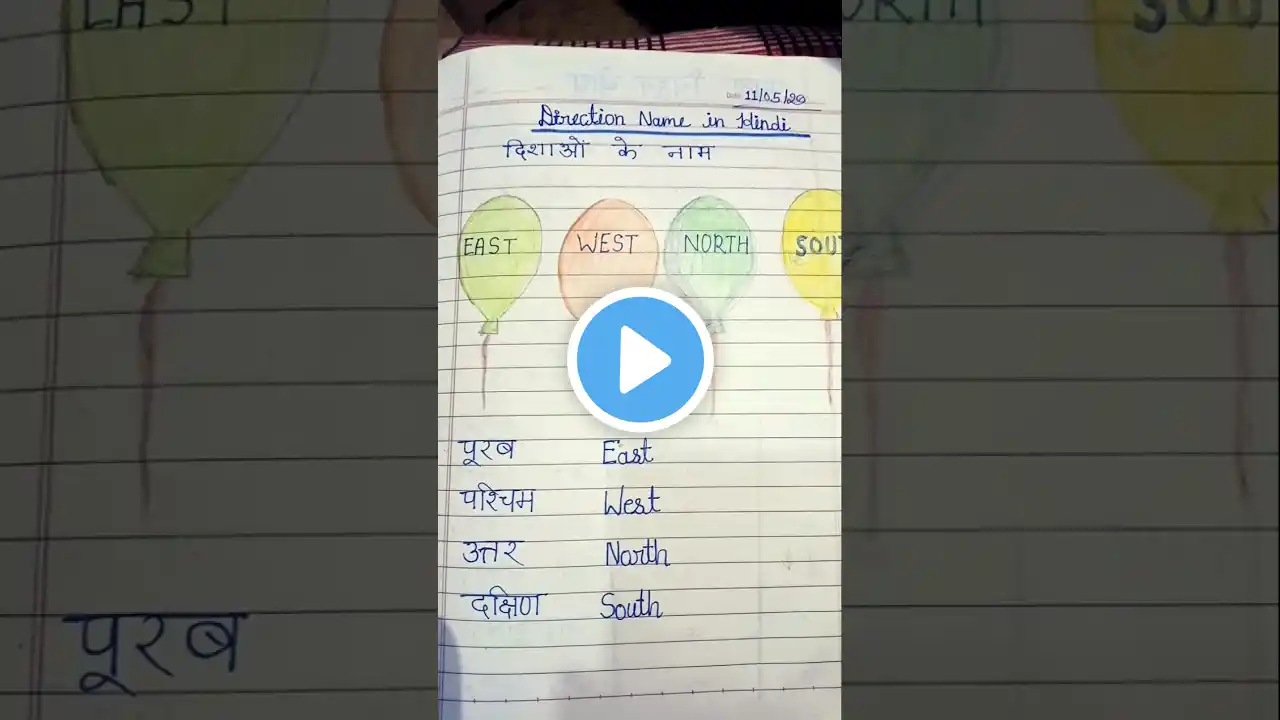 EAST ORTH SOU
11/05/20
Direction Name in Hindi
दिशाओं के नाम
EAST WEST NORTH SOUT
पूरब East
पश्चिम West
उत्तर North
दक्षिण South
पूरब